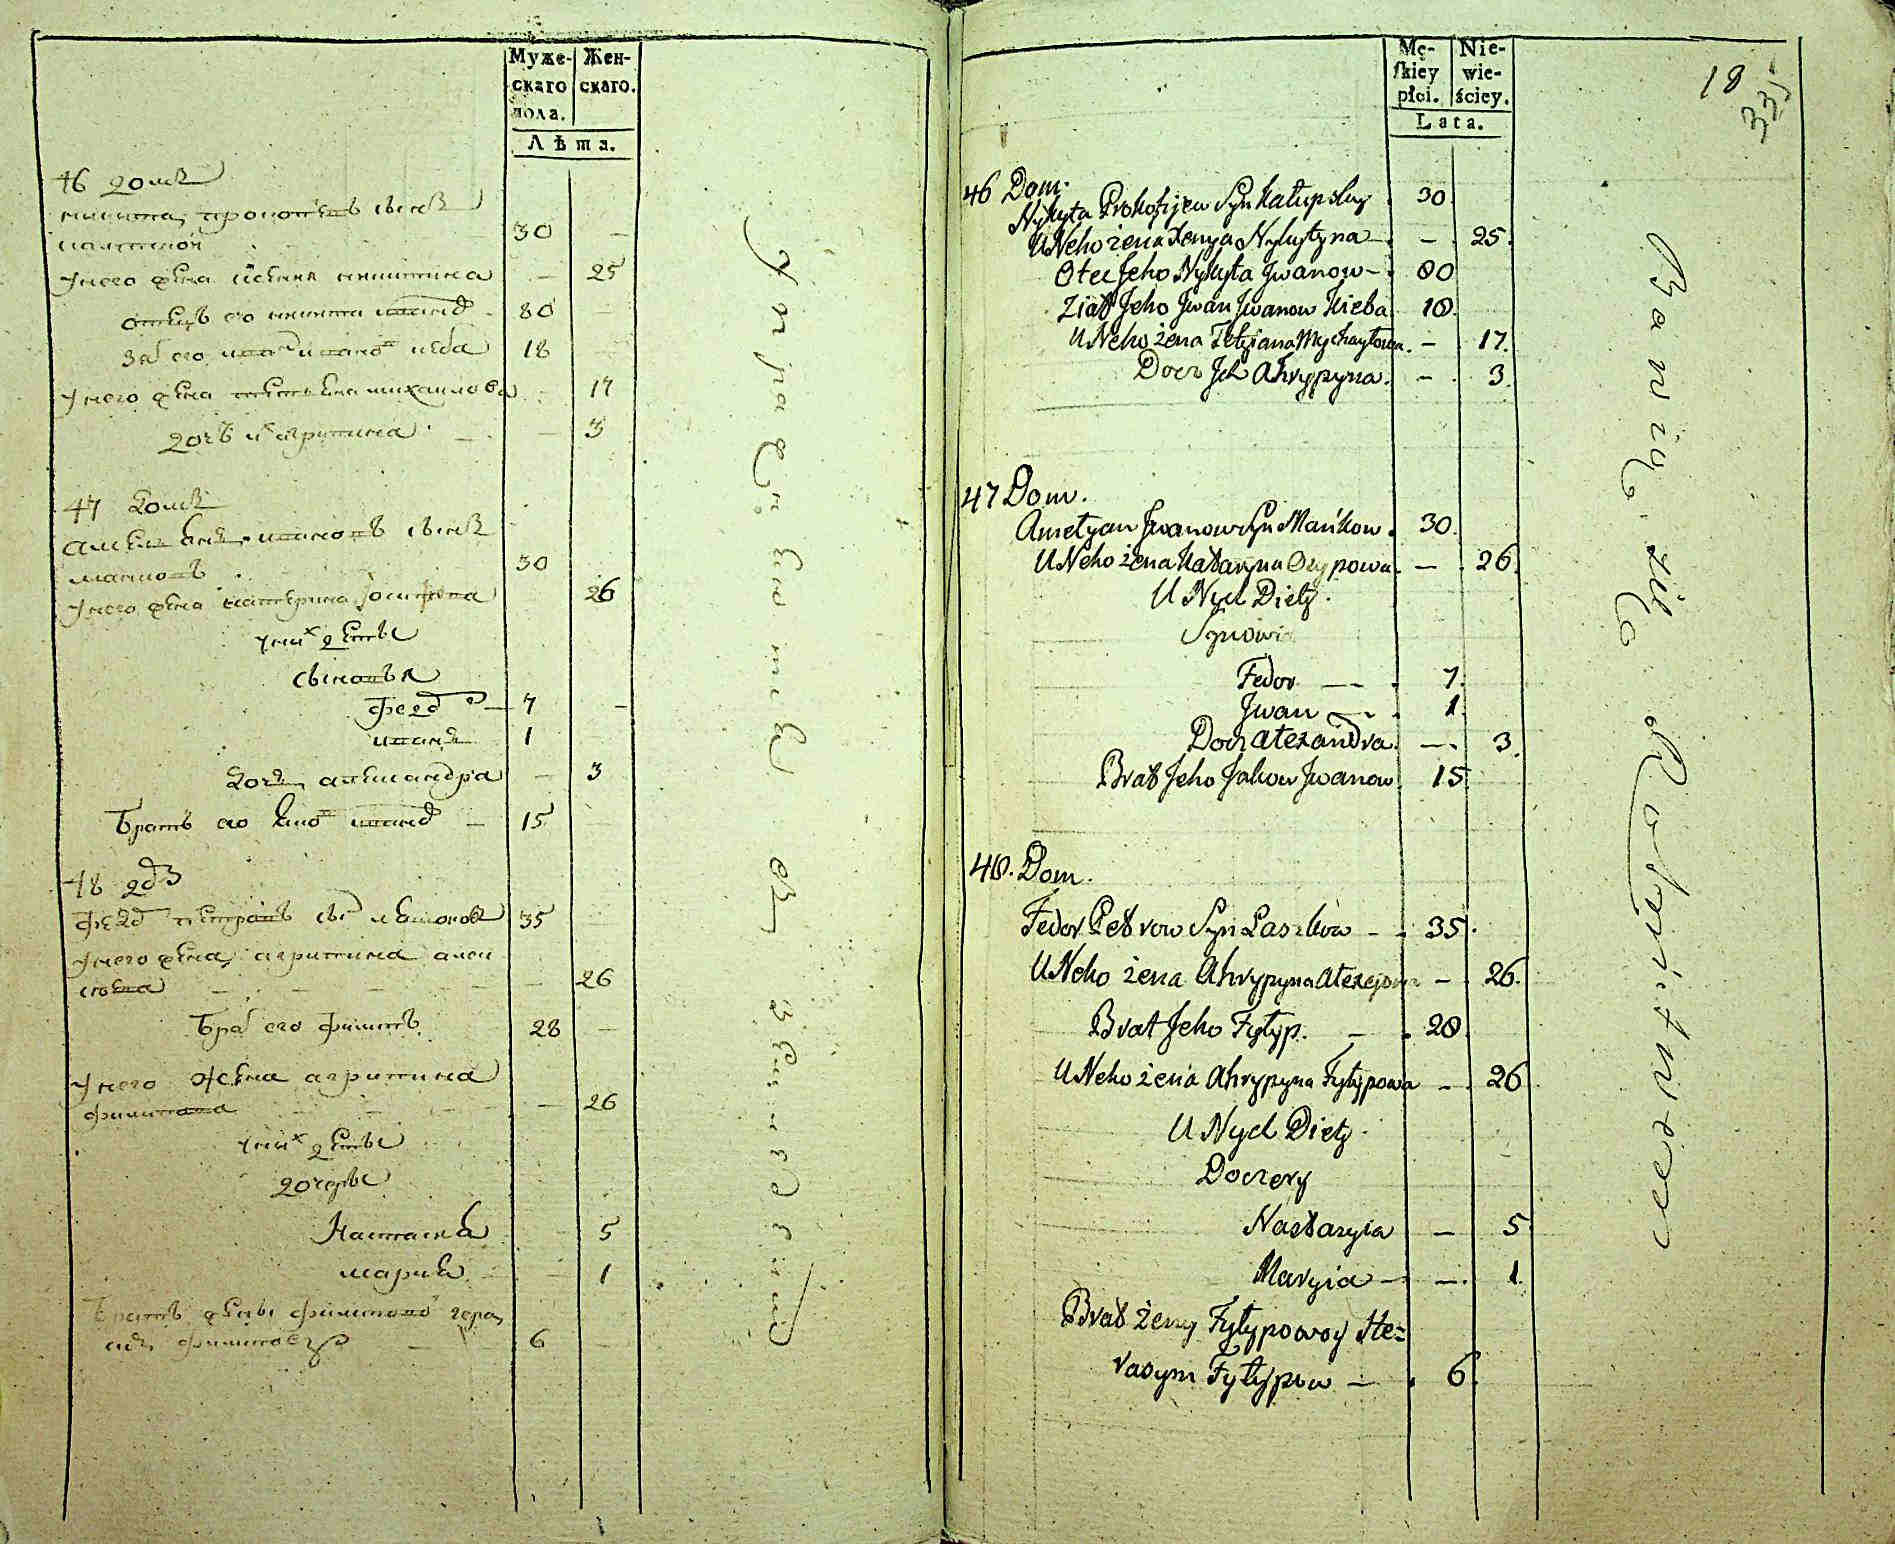 Муже-
скаго
пола.
Жен-
скаго.
Лѣта.
46 домъ
никита прокопѣвъ сынъ
30
У него жена ксения никитина 25
отецъ его никита иванов 80
зят его иван иванов кеба 18
У него жена татьяна михаилова 17
дочь их агрипина 3
47 домъ
емельянъ ивановъ сынъ
манковъ 30
У него жена катерина иосифова 26
у них дѣты
сыновья
федор 7
иванъ 1
дочь александра 3
братъ его яков иванов 15
48 дом
федор петровъ сын 35
У него жена агрипина алек
сѣева 26
брат его филипъ 28
У него жена агрипина
филипова 26
у них дѣты
дочеры
Настасия 5
мария 1
братъ жены филиповой гера
симъ филиповъ 6
Mę-
skiey
płci.
Nie-
wie-
ściey.
Lata.
18
335
46 Dom.
Nykyta Prokofijew Syn Kałupskuy 30
U Neho żena Xenya Nykytyna — 25.
Otec Jeho Nykyta Jwanow — 80
Ziat Jeho Jwan Jwanow Kieba 18.
U Neho żena Tetyiana Mychayłowa. — 17.
Docz Jch Ahrypyna. — 3.
47 Dom.
Amełyan Jwanow Syn Mańkow. 30.
U Neho żena Kataryna Osypowa. — 26.
U Nych Diety.
Synowie
Fedor — 7.
Jwan — 1
Docz Alexandra — 3.
Brat Jeho Jakow Jwanow 15
48. Dom.
Fedor Petrow Syn Laszkow — 35.
U Neho żena Ahrypyna Alexejowa — 26.
Brat Jeho Fyłyp. — 28
U Neho żena Ahrypyna Fyłypowa — 26
U Nych Diety.
Doczery
Nastasyia — 5
Maryia — 1.
Brat żeny Fyłypowoy He=
rasym Fyłypow — 6.